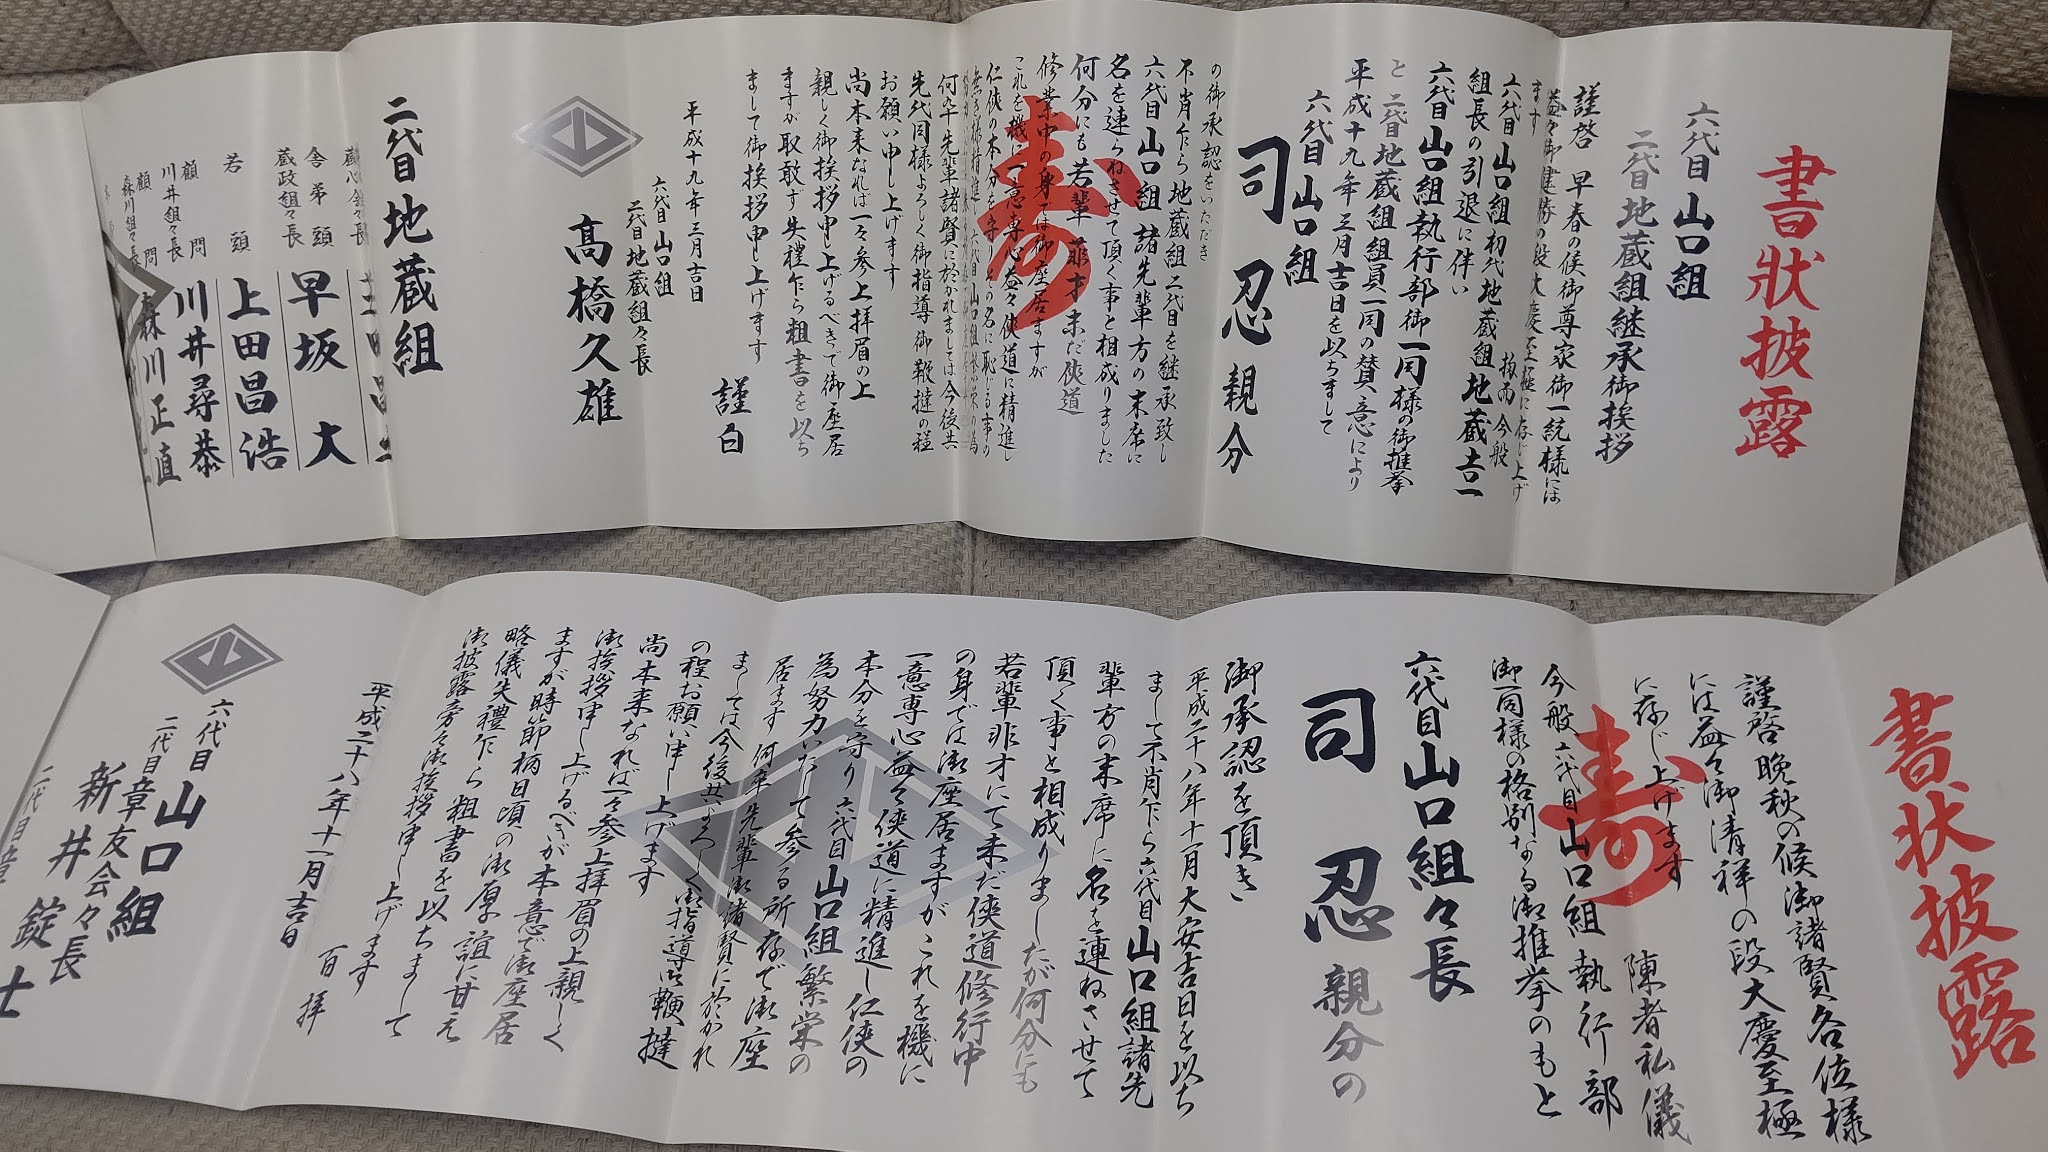 書狀披露
六代目 山口組
二代目 地蔵組継承御挨拶
謹啓 早春の候御尊家御一統様には
益々御健勝の段大慶至極に存じ上げ
ます 拘而 今般
六代目 山口組 初代地蔵組 地蔵吉一
組長の引退に伴い
六代目 山口組 執行部御一同様の御推挙
と 二代目 地蔵組組員一同の賛意により
平成十九年三月吉日を以ちまして
六代目 山口組
司 忍 親分
の御承認をいただき
不肖乍ら 地蔵組二代目を継承致し
六代目 山口組 諸先輩方の末席に
名を連らねさせて頂く事と相成りました
何分にも 若輩 菲才 未だ侠道
修業中の身では御座居ますが
これを機に一意専心益々侠道に精進し
仁侠の本分を守りその名に恥じる事の
何卒先輩諸賢に於かれましては今後共
先代同様よろしく御指導御鞭撻の程
お願い申し上げます
尚本来なれば一々参上拝眉の上
親しく御挨拶申し上げるべきで御座居
ますが取敢ず失禮乍ら粗書を以ち
まして御挨拶申し上げます
謹白
平成十九年三月吉日
六代目 山口組
二代目 地蔵組々長
髙橋久雄
二代目 地蔵組
舎弟頭
蔵政組々長
早坂 大
若頭
上田昌浩
顧問
川井組々長
川井尋恭
顧問
森川組々長
森川正直
書状披露
謹啓 晩秋の候御諸賢各位様
には益々御清祥の段大慶至極
に存じ上げます 陳者私儀
今般 六代目 山口組 執行部
御一同様の格別なる御推挙のもと
六代目 山口組々長
司 忍 親分の
御承認を頂き
平成二十八年十一月大安吉日を以ち
まして不肖乍ら六代目 山口組諸先
輩方の末席に名を連ねさせて
頂く事と相成りましたが何分にも
若輩非才にて未だ侠道修行中
の身では御座居ますがこれを機に
一意専心益々侠道に精進し仁侠の
本分を守り六代目 山口組繁栄の
為努力いたして参る所存で御座
居ます 何卒先輩御諸賢に於かれ
ましては今後共よろしく御指導御鞭撻
の程お願い申し上げます
尚本来なれば一々参上拝眉の上親しく
御挨拶申し上げるべきが本意で御座居
ますが時節柄日頃の御厚誼に甘え
略儀失禮乍ら粗書を以ちまして
御披露旁々御挨拶申し上げます
百拝
平成二十八年十一月吉日
六代目 山口組
二代目 章友会々長
新井錠士
二代目章
寿
寿